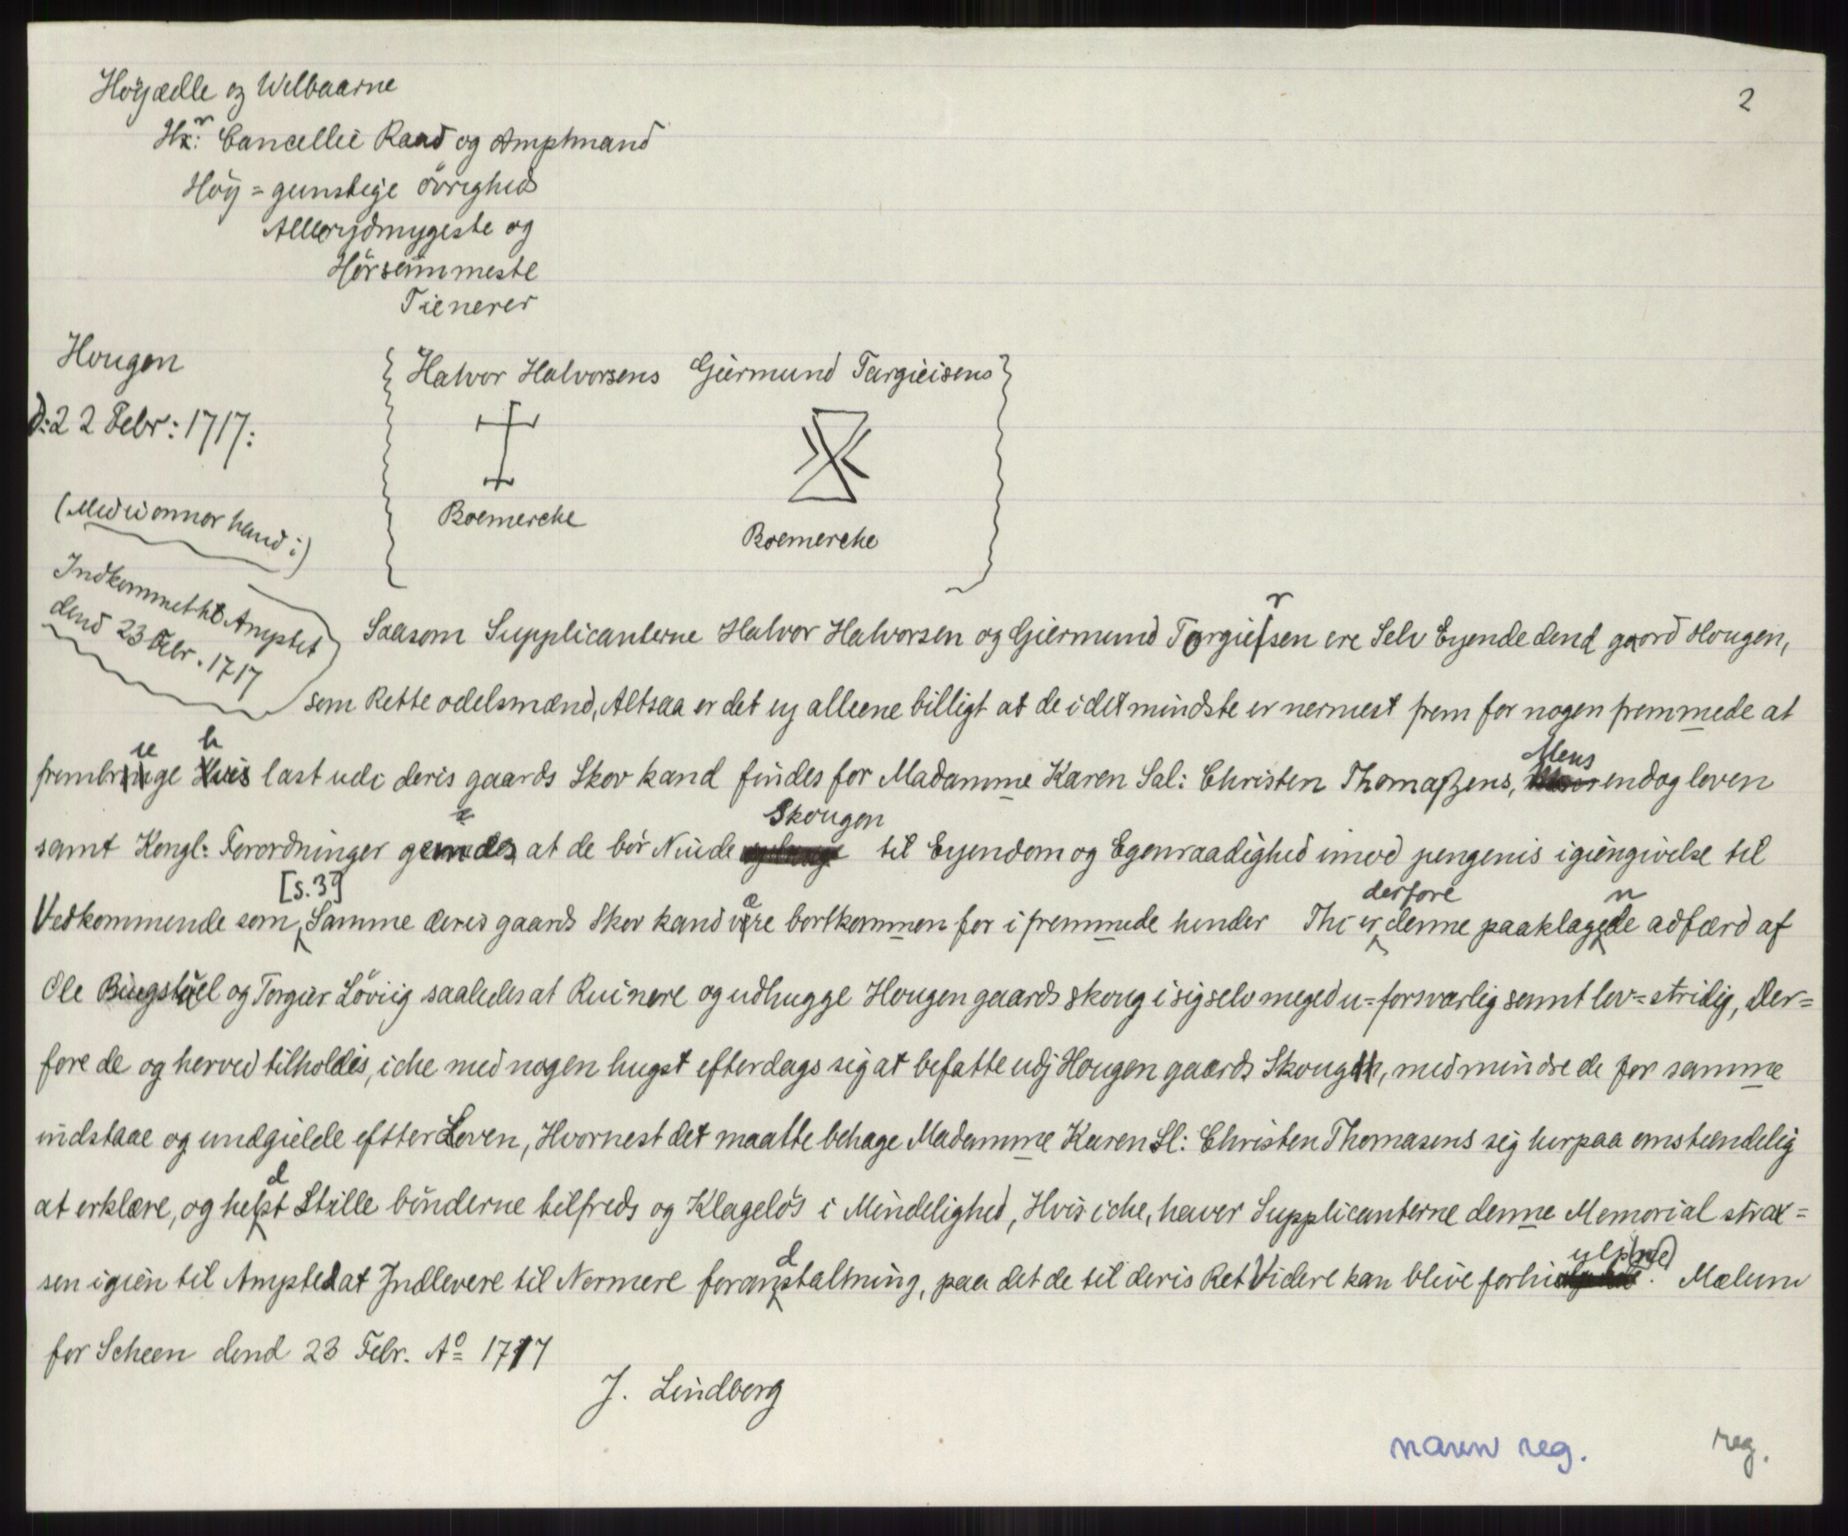 2
Höÿædle og Welbaarne
Hr: Cancellie Raad og Amptmand
Höÿ = gunstige övrighed
Allerydmygeste og
Hörsummeste
Tienerer
Hougen
D: 22 Febr: 1717:
Halvor Halvorsens Giermund Targieisens
Boemercke
Boemercke
(Med en annor hand:)
Indkommet til Amptet
dend 23 Febr. 1717
Saasom Supplicanterne Halvor Halvorsen og Giermund Torgiersen ere Selv Eyende dend gaord Hougen,
som Rette odelsmænd, Altsaa er det ey alleene billigt at de i det mindste er nermest frem for nogen fremmede at
frembringe hvis last udi deris gaards Skov kand findes for Madamme Karen Sal: Christen Thomaszens, Mens endog loven
samt Kongl: Forordninger at de bör Niude Skougen til Eyendom og Egenraadighed imod pengenis igiengivelse til
[s. 3]
Vedkommende som Samme deris gaards Skov kand være bortkommen for i fremmede hender Thi er derfore denne paaklagende adfærd af
Ole Bugstüel og Torgier Löviig saaledes at Ruinere og udhugge Hougen gaards skoug i sig selv meged u=forsvarlig samt lov=stridig, Der=
fore de og herved tilholdes, iche med nogen hugst efterdags sig at befatte udj Hougen gaards Skoug, med mindre de for samme
indstaae og undgielde eftter Loven, Hvornest det maatte behage Madamme Karen Sl: Christen Thomasens sig herpaa omstændelig
at erklære, og helst Stille bönderne tilfreds og Klagelös i Mindelighed, Hvis iche, haver Supplicanterne denne Memorial strax=
sen igien til Ampted at Indlevere til Nermere foranstaltning, paa det de til deris Ret Videre kan blive Mælum
for Scheen dend 23 Febr. Aº 1717
J. Lindberg
navn reg.
reg.